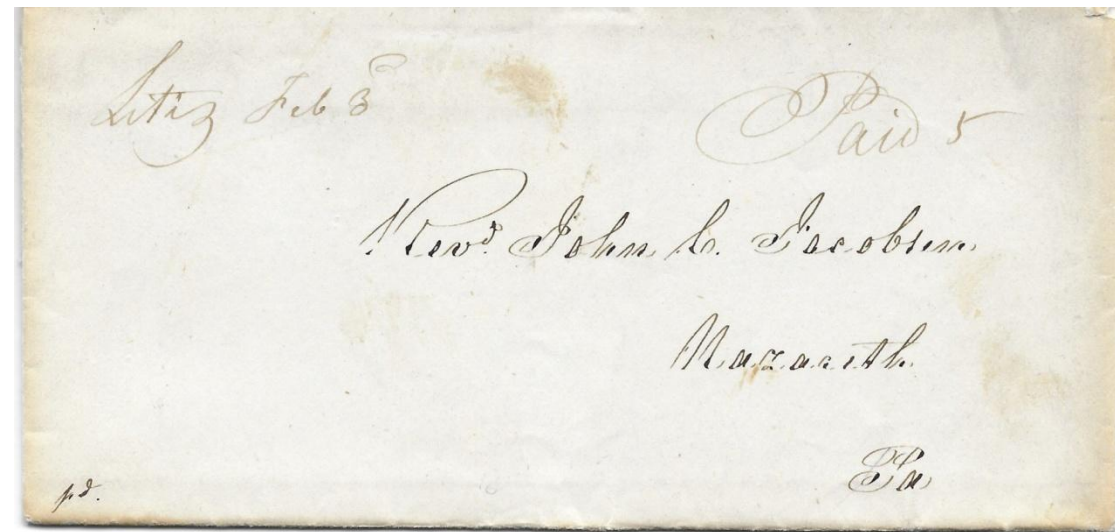 Litiz Feb 3
Paid 5
Revd. John C. Jacobsen
Nazareth
Pa
pd.